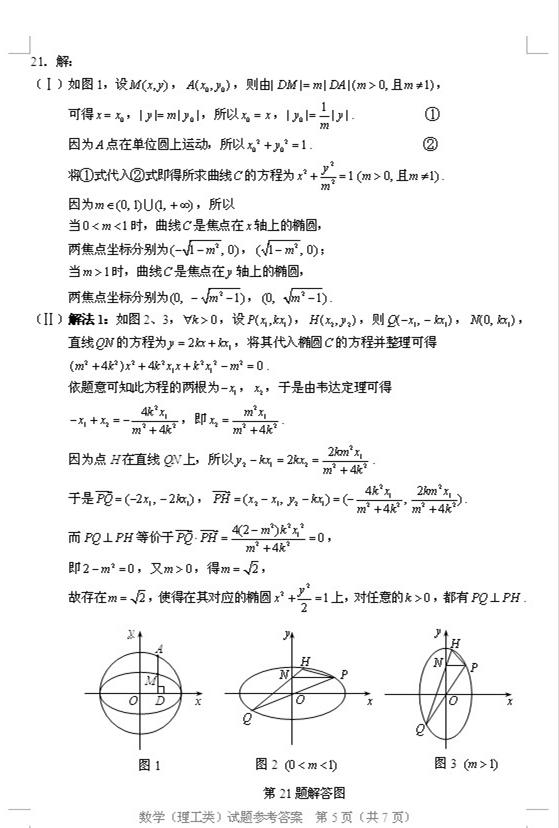 21. 解:
(Ⅰ) 如图 1, 设M(x,y), A(x₀,y₀), 则由|DM|=m|DA|(m>0, 且m≠1),
可得x=x₀, |y|=m|y₀|, 所以x₀=x, |y₀|=1/m|y|. ①
因为A点在单位圆上运动, 所以x₀²+y₀²=1. ②
将①式代入②式即得所求曲线C的方程为x²+y²/m²=1 (m>0, 且m≠1).
因为m∈(0, 1)∪(1, +∞), 所以
当0<m<1时, 曲线C是焦点在x轴上的椭圆,
两焦点坐标分别为(-√(1-m²), 0), (√(1-m²), 0);
当m>1时, 曲线C是焦点在y轴上的椭圆,
两焦点坐标分别为(0, -√(m²-1)), (0, √(m²-1)).
(Ⅱ) 解法 1: 如图 2、3, ∀k>0, 设P(x₁,kx₁), H(x₂,y₂), 则Q(-x₁,-kx₁), N(0,kx₁),
直线QN的方程为y=2kx+kx₁, 将其代入椭圆C的方程并整理可得
(m²+4k²)x²+4k²x₁x+k²x₁²-m²=0.
依题意可知此方程的两根为-x₁, x₂, 于是由韦达定理可得
-x₁+x₂=-4k²x₁/(m²+4k²), 即x₂=m²x₁/(m²+4k²).
因为点H在直线QN上, 所以y₂-kx₁=2kx₂=2km²x₁/(m²+4k²).
于是PQ→=(-2x₁,-2kx₁), PH→=(x₂-x₁, y₂-kx₁)=(-4k²x₁/(m²+4k²), 2km²x₁/(m²+4k²)).
而PQ⊥PH等价于PQ→·PH→=4(2-m²)k²x₁²/(m²+4k²)=0,
即2-m²=0, 又m>0, 得m=√2,
故存在m=√2, 使得在其对应的椭圆x²+y²/2=1上, 对任意的k>0, 都有PQ⊥PH.
A
M
O D x
图 1
y
H
N P
O x
Q
图 2 (0<m<1)
y
H
N P
O x
Q
图 3 (m>1)
第 21 题解答图
数学（理工类）试题参考答案 第 5 页（共 7 页）